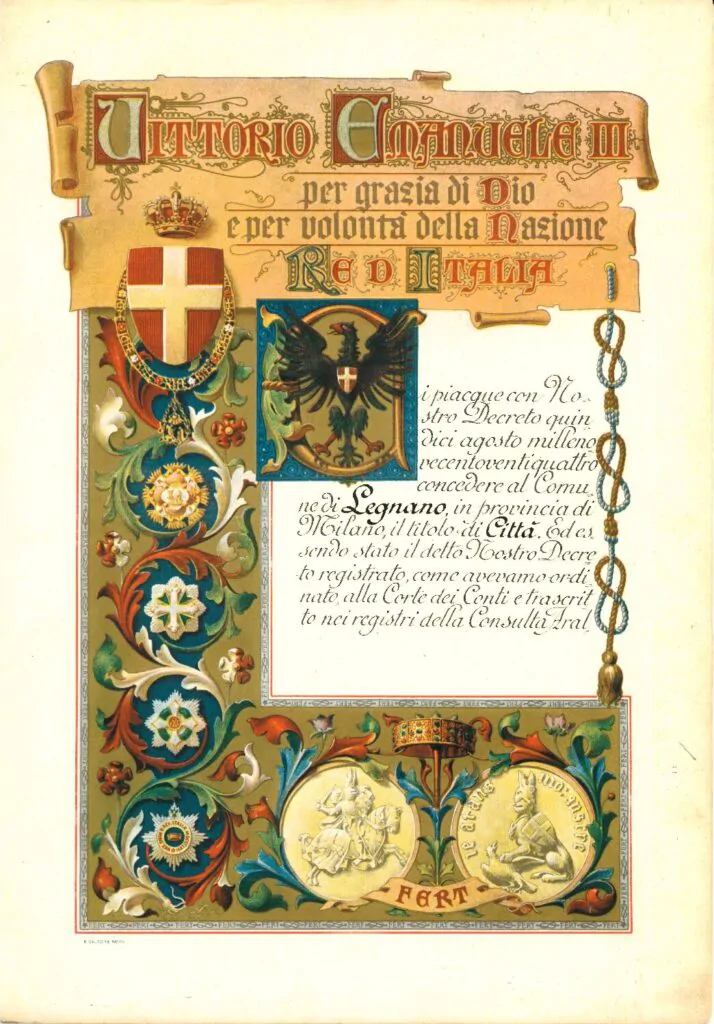 VITTORIO EMANUELE III
per grazia di Dio
e per volontà della Nazione
RE D ITALIA
i piacque con No-
stro Decreto quin
dici agosto milleno
vecentoventiquattro
concedere al Comu-
ne di Legnano, in provincia di
Milano, il titolo di Città. Ed es
sendo stato il detto Nostro Decre
to registrato, come avevamo ordi
nato, alla Corte dei Conti e trascrit
to nei registri della Consulta Aral
je atans
mor astre
FERT